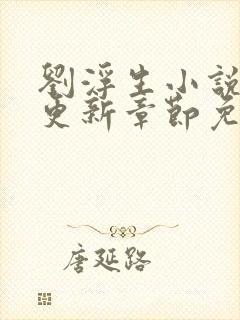 劉浮生小說
更新章節免
唐延路